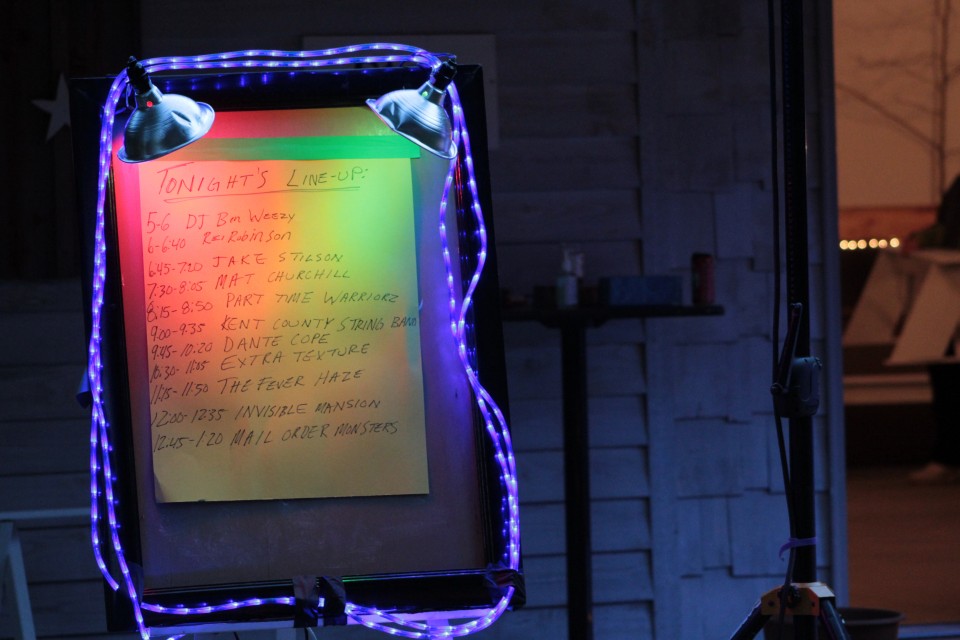 TONIGHT'S LINE-UP:
5-6 DJ Ben Weezy
6-6:40 Roci Robinson
6:45-7:20 JAKE STILSON
7:30-8:05 MAT CHURCHILL
8:15-8:50 PART TIME WARRIORZ
9:00-9:35 KENT COUNTY STRING BAND
9:45-10:20 DANTE COPE
10:30-11:05 EXTRA TEXTURE
11:15-11:50 THE FEVER HAZE
12:00-12:35 INVISIBLE MANSION
12:45-1:20 MAIL ORDER MONSTERS